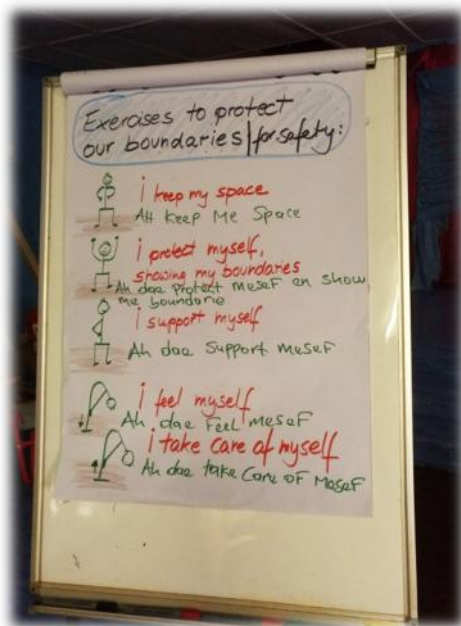 Exercises to protect
our boundaries | for safety:
i keep my space
AH Keep Me Space
i protect myself,
showing my boundaries
Ah dae Protect meseF en show
me boundarie
i support myself
Ah dae Support MeseF
i feel myself
Ah dae Feel meseF
i take care of myself
Ah dae take Care OF MeseF